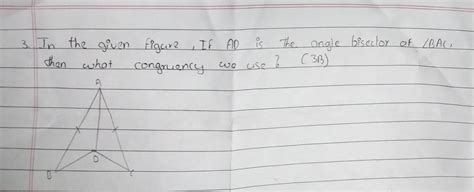 3. In the given figure, If AD is the angle bisector of ∠BAC,
then what congruency we use? (3B)
A
D
B
C